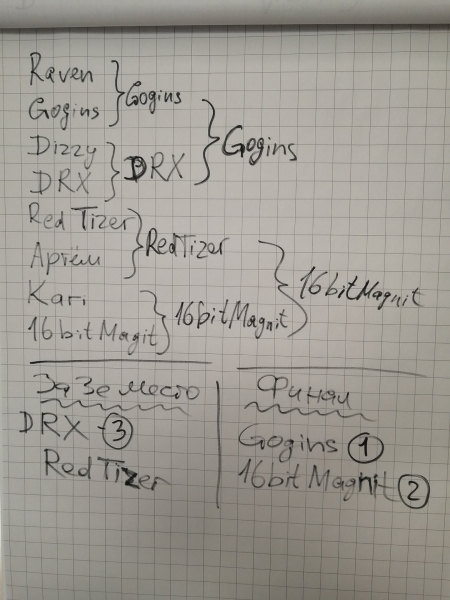 Raven
Gogins
Gogins
Dizzy
DRX
DRX
Gogins
Red Tizer
Артём
RedTizer
Kari
16bitMagit
16bitMagnit
16bitMagnit
За 3е место
DRX - 3
RedTizer
Финал
Gogins 1
16bitMagnit 2